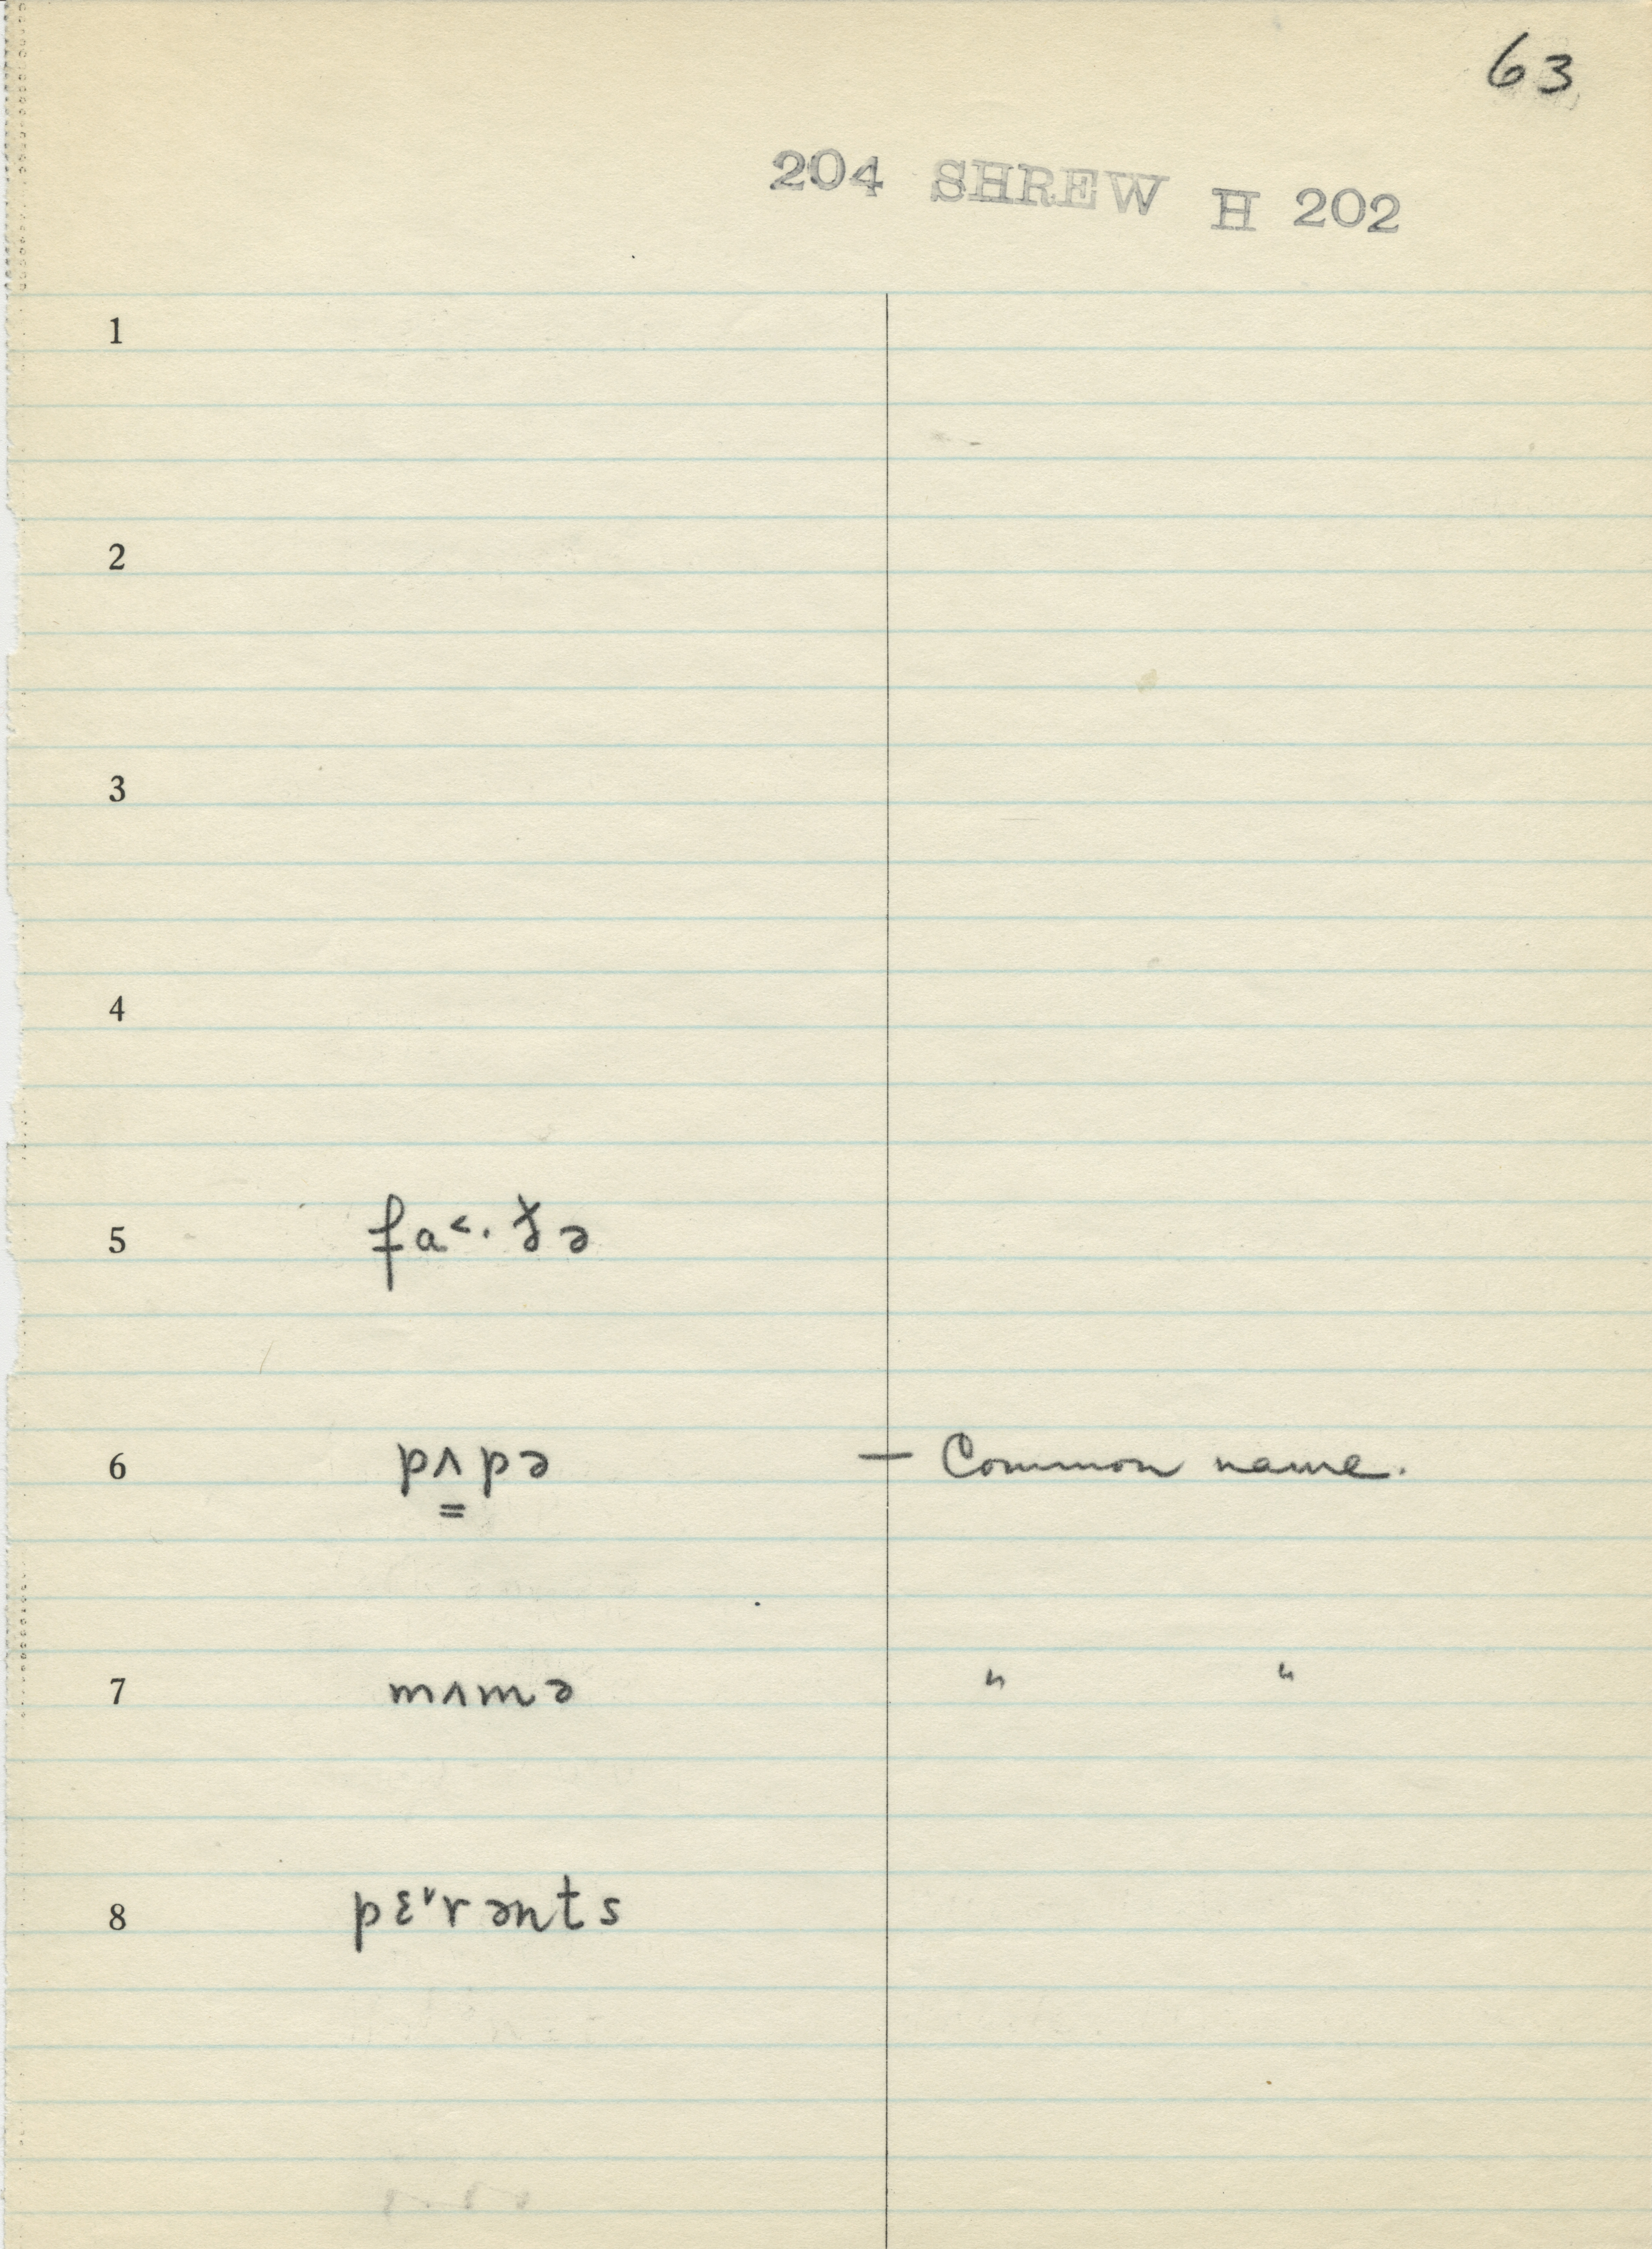 63
204 SHREW H 202
1
2
3
4
5 fa˂· ðə
6 pʌ̳pə — Common name.
7 mʌmə " "
8 pɛ˅rənts